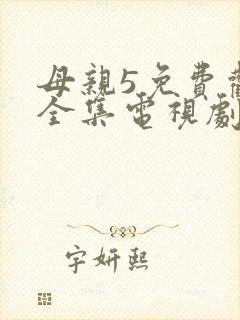 母親5免費
全集電視劇
字妍熙